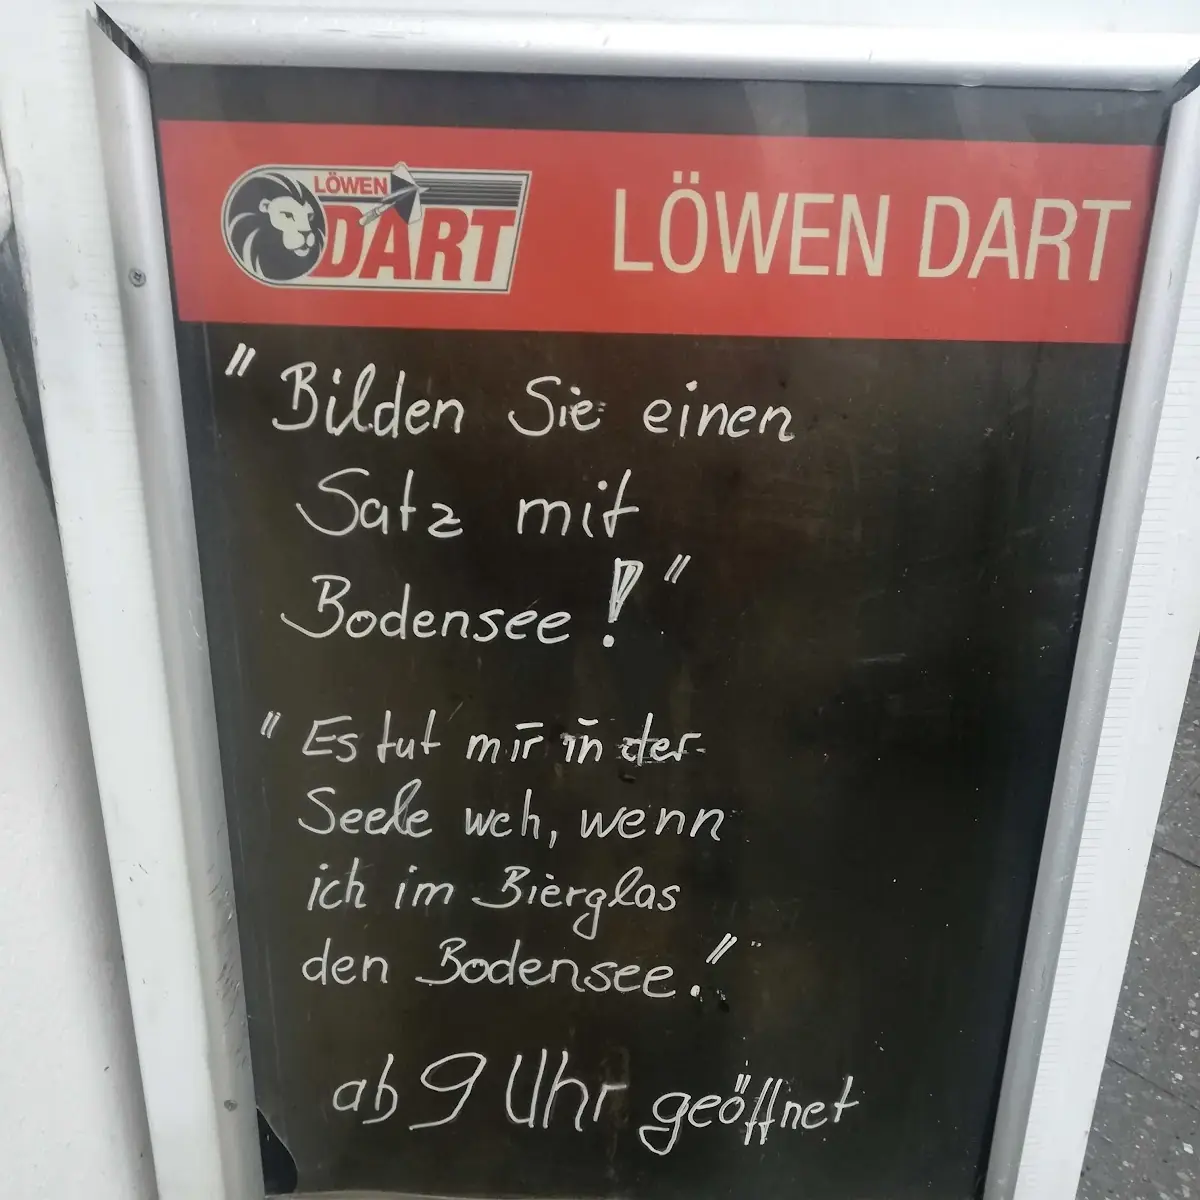 LÖWEN
DART
LÖWEN DART
"Bilden Sie einen
Satz mit
Bodensee!"
"Es tut mir in der
Seele weh, wenn
ich im Bierglas
den Bodensee."
ab 9 Uhr geöffnet